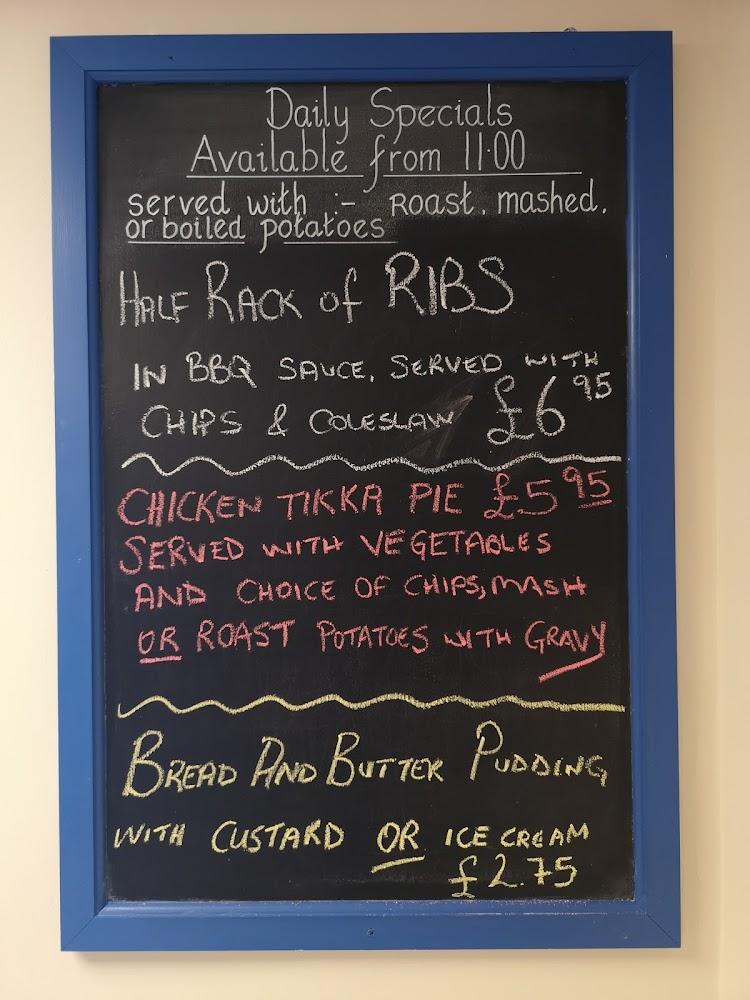 Daily Specials
Available from 11·00
served with :- Roast, mashed,
or boiled potatoes
HALF RACK of RIBS
IN BBQ SAUCE, SERVED WITH
CHIPS & COLESLAW £6 95
CHICKEN TIKKA PIE £5 95
SERVED WITH VEGETABLES
AND CHOICE OF CHIPS, MASH
OR ROAST POTATOES WITH GRAVY
BREAD AND BUTTER PUDDING
WITH CUSTARD OR ICE CREAM
£2.75